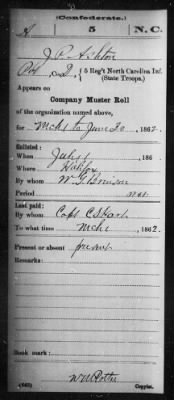 (Confederate.)
A 5 N.C.
J. P. Ashton
Pvt, Co. I, 5 Reg't North Carolina Inf.
(State Troops.)
Appears on
Company Muster Roll
of the organization named above,
for Mch 1 to June 30, 1862.
Enlisted:
When July 1, 186
Where Halifax
By whom W. G. Brinson
Period war
Last paid:
By whom Capt
To what time Mch 1, 1862.
Present or absent present
Remarks:
Book mark:
(642) Copyist.